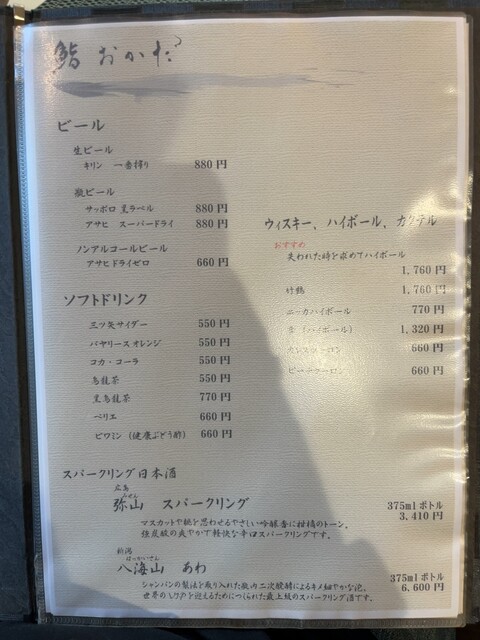 鮨 おかだ
ビール
生ビール
キリン 一番搾り 880円
瓶ビール
サッポロ 黒ラベル 880円
アサヒ スーパードライ 880円
ノンアルコールビール
アサヒドライゼロ 660円
ソフトドリンク
三ツ矢サイダー 550円
バヤリースオレンジ 550円
コカ・コーラ 550円
烏龍茶 550円
黒烏龍茶 770円
ペリエ 660円
ビワミン (健康ぶどう酢) 660円
ウィスキー、ハイボール、カクテル
おすすめ
失われた時を求めてハイボール
1,760円
竹鶴 1,760円
ニーカハイボール 770円
(ハイボール) 1,320円
660円
660円
スパークリング日本酒
広島
弥山 スパークリング 375mlボトル
3,410円
マスカットや桃を思わせるやさしい吟醸香に柑橘のトーン。
強炭酸の爽やかで軽快な辛口スパークリングです。
新潟
はっかいさん
八海山 あわ 375mlボトル
6,600円
シャンパンの製法を取り入れた瓶内二次醗酵によるキメ細やかな泡。
世界のVIPを迎えるためにつくられた最上級のスパークリング酒です。